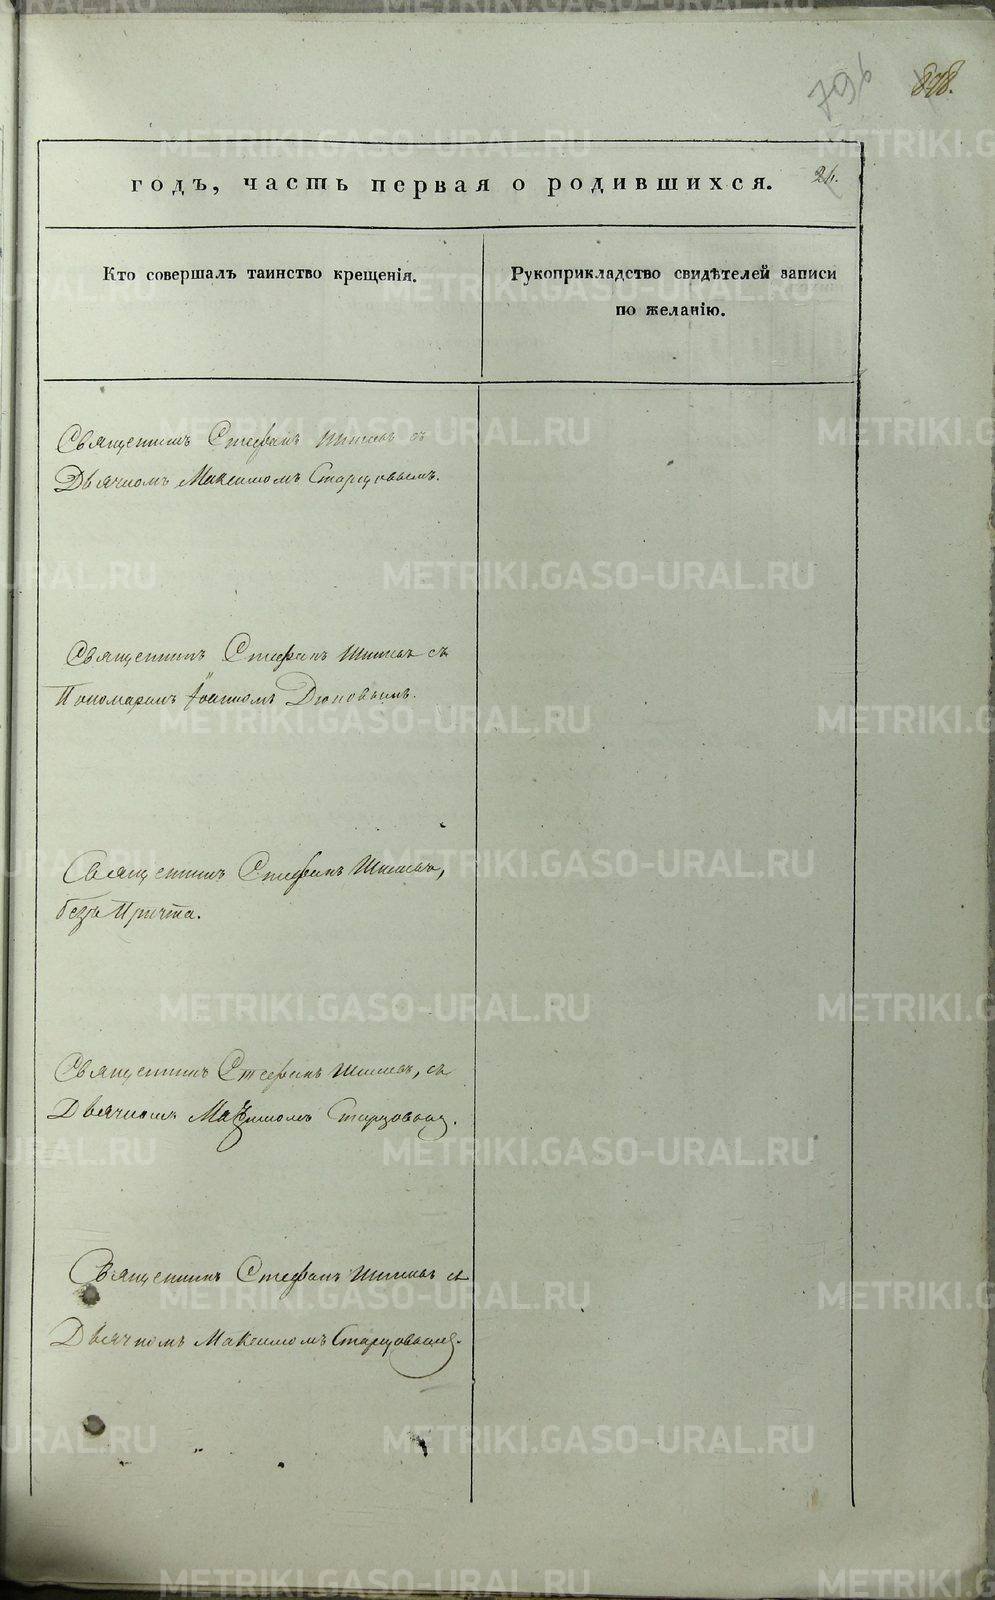 796
898.
годъ, часть первая о родившихся. 24.
Кто совершалъ таинство крещенія.
Рукоприкладство свидѣтелей записи
по желанію.
Священникъ Стефанъ съ
Дьячкомъ Максимомъ Старцовымъ.
Священникъ Стефанъ съ
Пономаремъ Іоанномъ
Священникъ Стефанъ
безъ Причта.
Священникъ Стефанъ съ
Дьячкомъ Максимомъ Старцовымъ.
Священникъ Стефанъ съ
Дьячкомъ Максимомъ Старцовымъ.
METRIKI.GASO-URAL.RU